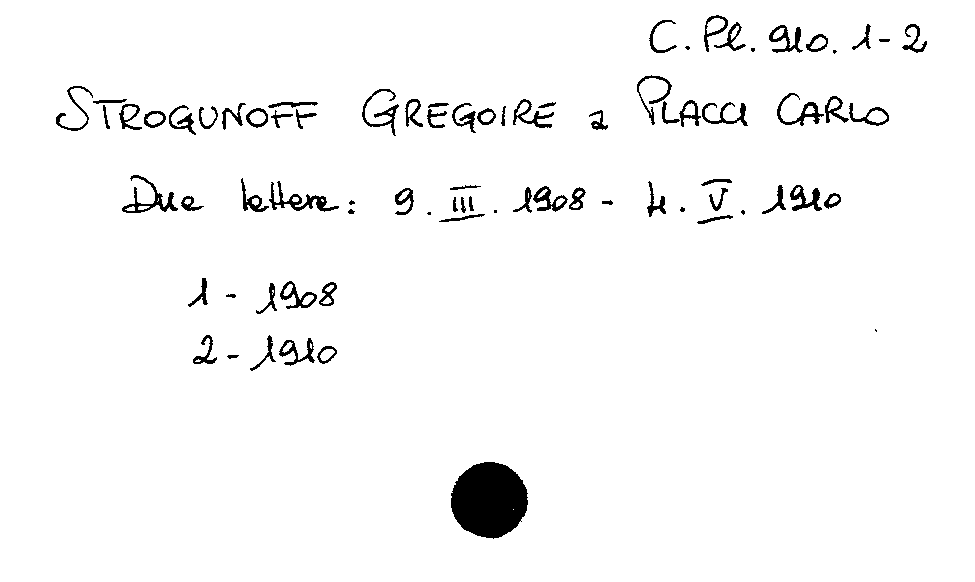 C. Pl. 910. 1-2
STROGUNOFF GREGOIRE a PLACCI CARLO
Due lettere: 9. III. 1908 - 4. V. 1910
1 - 1908
2 - 1910